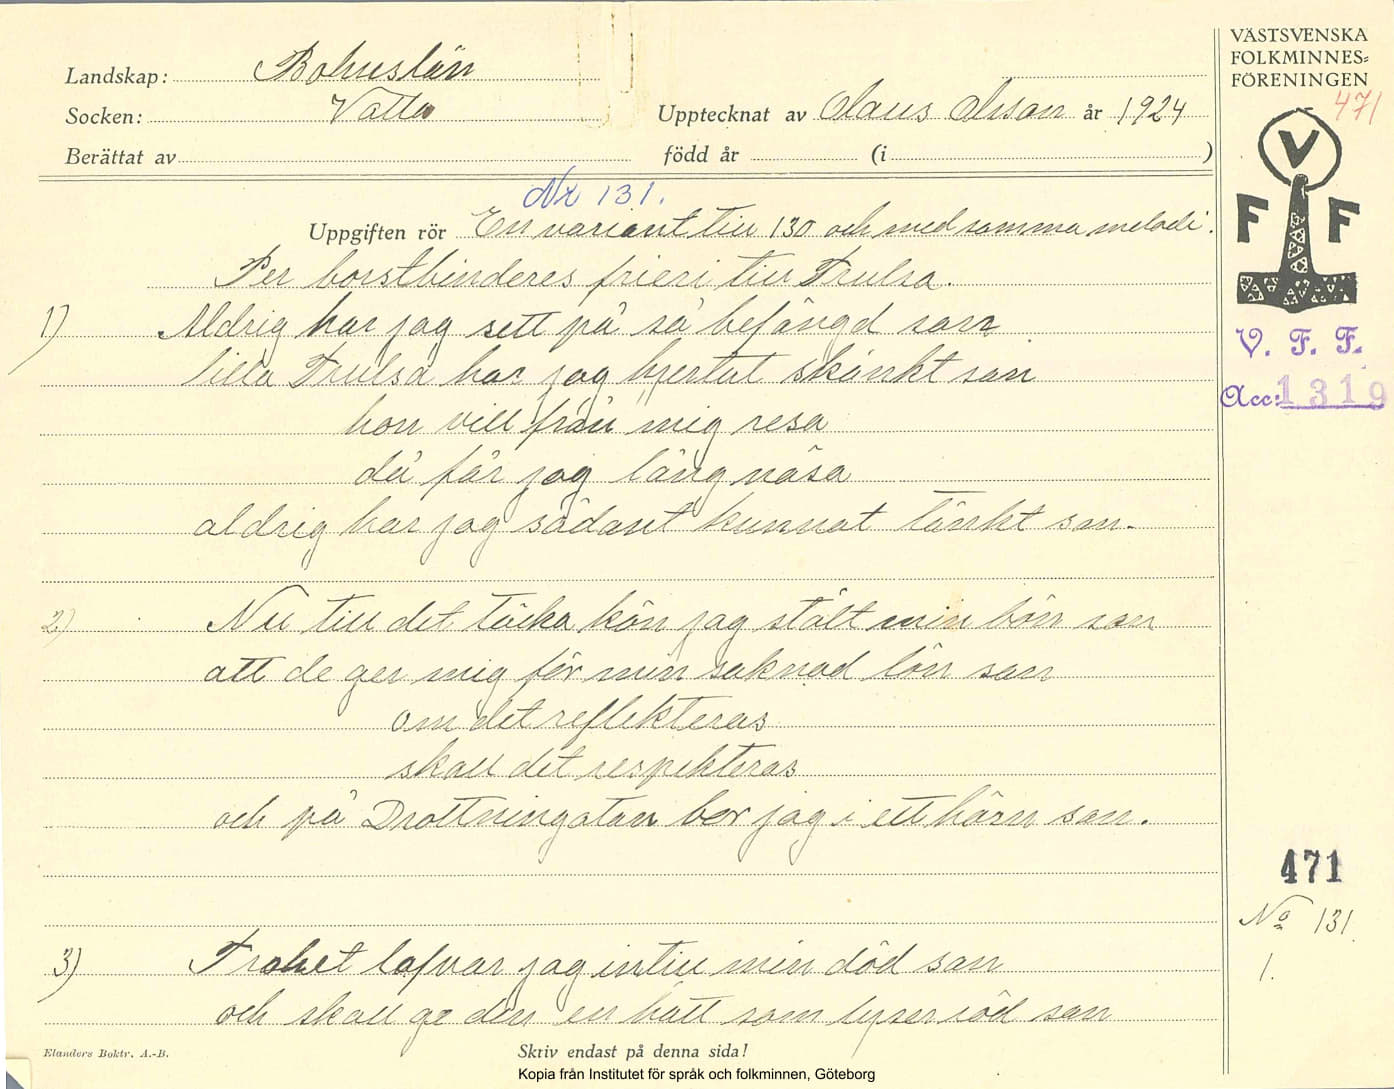 Landskap: Bohuslän
Socken: Valla
Upptecknat av Olaus Olsson år 1924
Berättat av
född år (i )
VÄSTSVENSKA
FOLKMINNES=
FÖRENINGEN
471
V
F F
V. F. F.
Acc: 1319
Nr 131.
Uppgiften rör En variant till 130 och med samma melodi.
Per borstbinderes frieri till Trulsa.
1) Aldrig har jag sett på så befängd san
lilla Trulsa har jag hjertat skänkt san
hon vill från mig resa
då får jag lång näsa
aldrig har jag sådant kunnat tänkt san.
2) Nu till det täcka kön jag stält min bön san
att de ger mig för min saknad lön san
om det reflekteras
skall det respekteras
och på Drottningatan bor jag i ett hörn san.
3) Trohet lofvar jag intill min död san
och skall ge den en hatt som lyser röd san
471
No 131.
1.
Elanders Boktr. A.-B.
Skriv endast på denna sida!
Kopia från Institutet för språk och folkminnen, Göteborg